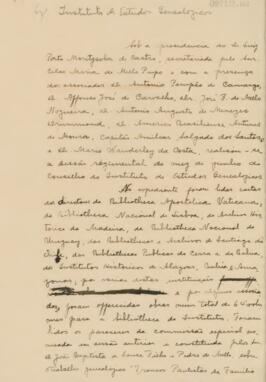 Instituto de Estudos Genealogicos
Sob a presidencia do dr. Luiz
Porto Montzsohn de Castro, secretariada pelo Sr.
Carlos Maria de Mello Pupo e com a presença
dos associados dr. Antonio Pompêo de Camargo,
dr. Affonso José de Carvalho, dr. José F. de Mello
Nogueira, dr. Antonio Augusto de Menezes
Drummond, dr. Americo Brasiliense Antunes
de Moura, Capitão Amilcar Salgado dos Santos,
e dr. Mario Wanderley da Costa, realisou-se
a sessão regimental do mez de junho do
Conselho do Instituto de Estudos Genealogicos
No expediente foram lidas cartas
do director da Bibliotheca Apostolica Vaticana,
da Bibliotheca Nacional de Lisboa, do Archivo His-
torico da Madeira, da Bibliotheca Nacional do
Uruguay, das Bibliothecas e Archivos de Santiago do
Chile, das Bibliothecas Publicas do Ceará e da Bahia,
dos Institutos Historicos de Alagoas, Bahia e Ama-
zonas,
e por alguns
foram offerecidas obras num total de 6 volu-
mes para a bibliotheca do Instituto. Foram
lidos os pareceres da commissão especial no-
meada na sessão anterior e constituida pelos srs.
dr. João Baptista de e Pedro de Mello, sobre
trabalho genealogico "Troncos Paulistas da Familia